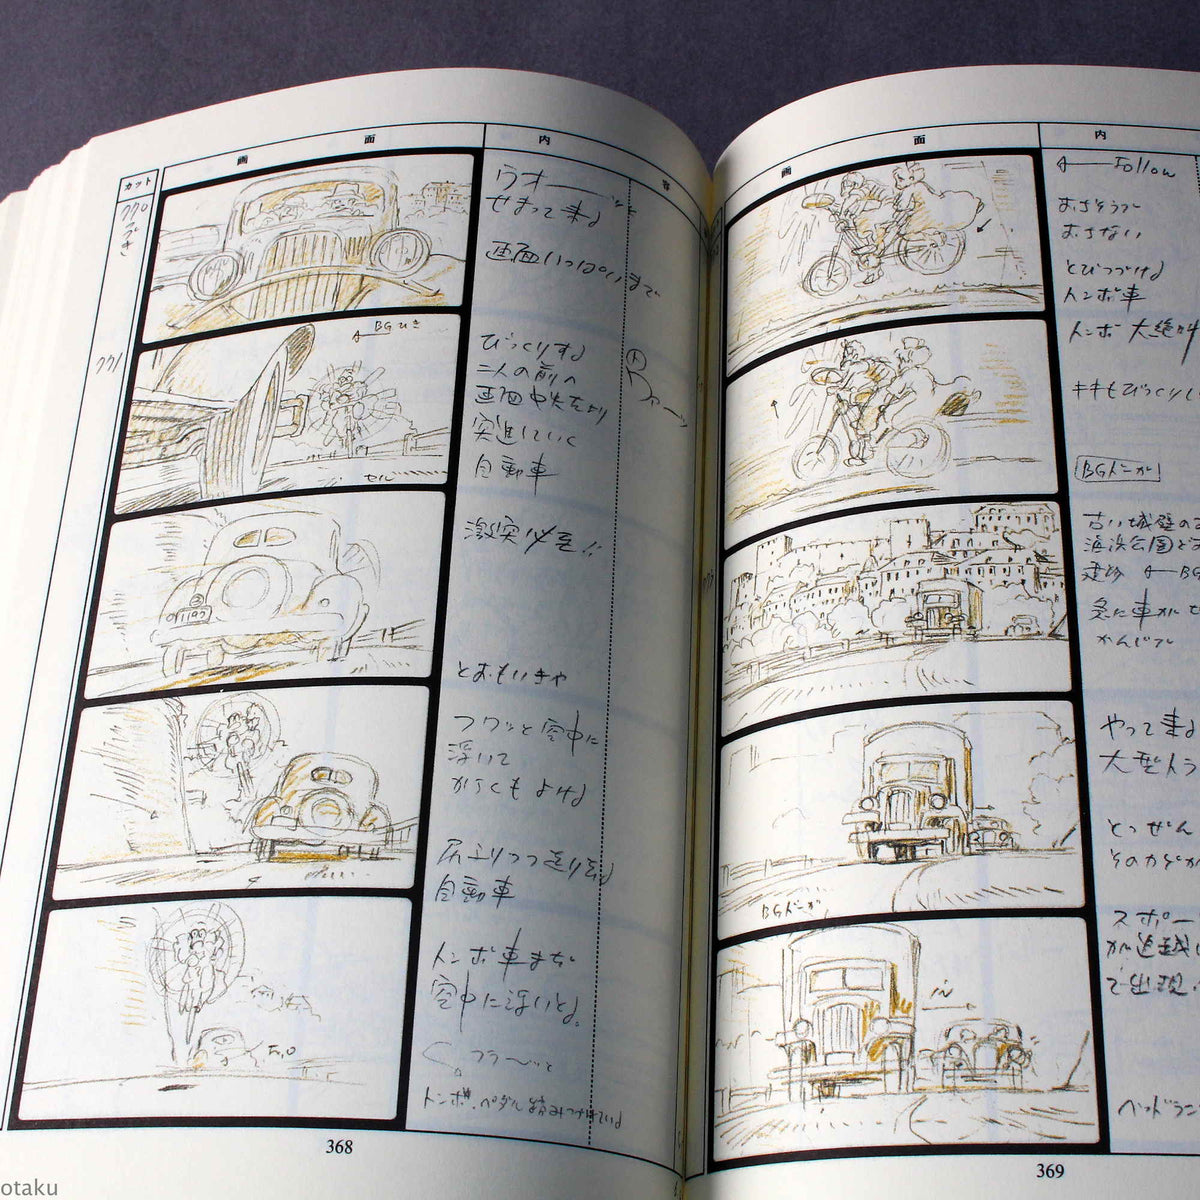 カット
画面
内
容
770
つづき
ウオーー
せまって来る
画面いっぱいまで
771
BGひき
びっくりする
二人の前へ
画面中央より
突進していく
自動車
ト
セル
激突必至!!
とおもいきや
フワッと空中に
浮いて
からくもよける
尻ふりつつ走り去る
自動車
F.O
トンボ車まだ
空中に浮いとる。
フラ〜〜ッと
トンボ、ペダル踏みつづけている
368
画面
内
Follow
おさそうで
おちない
とびつづける
トンボ車
トンボ 大絶叫
キキもびっくりし
BGドンガ
古い城壁の
海浜公園
BG
急に車が
かんじで
やって来る
大型トラ
とつぜん
そのカゲか
BGドンガ
スポー
が追越し
で出現
ヘッドラン
369
otaku